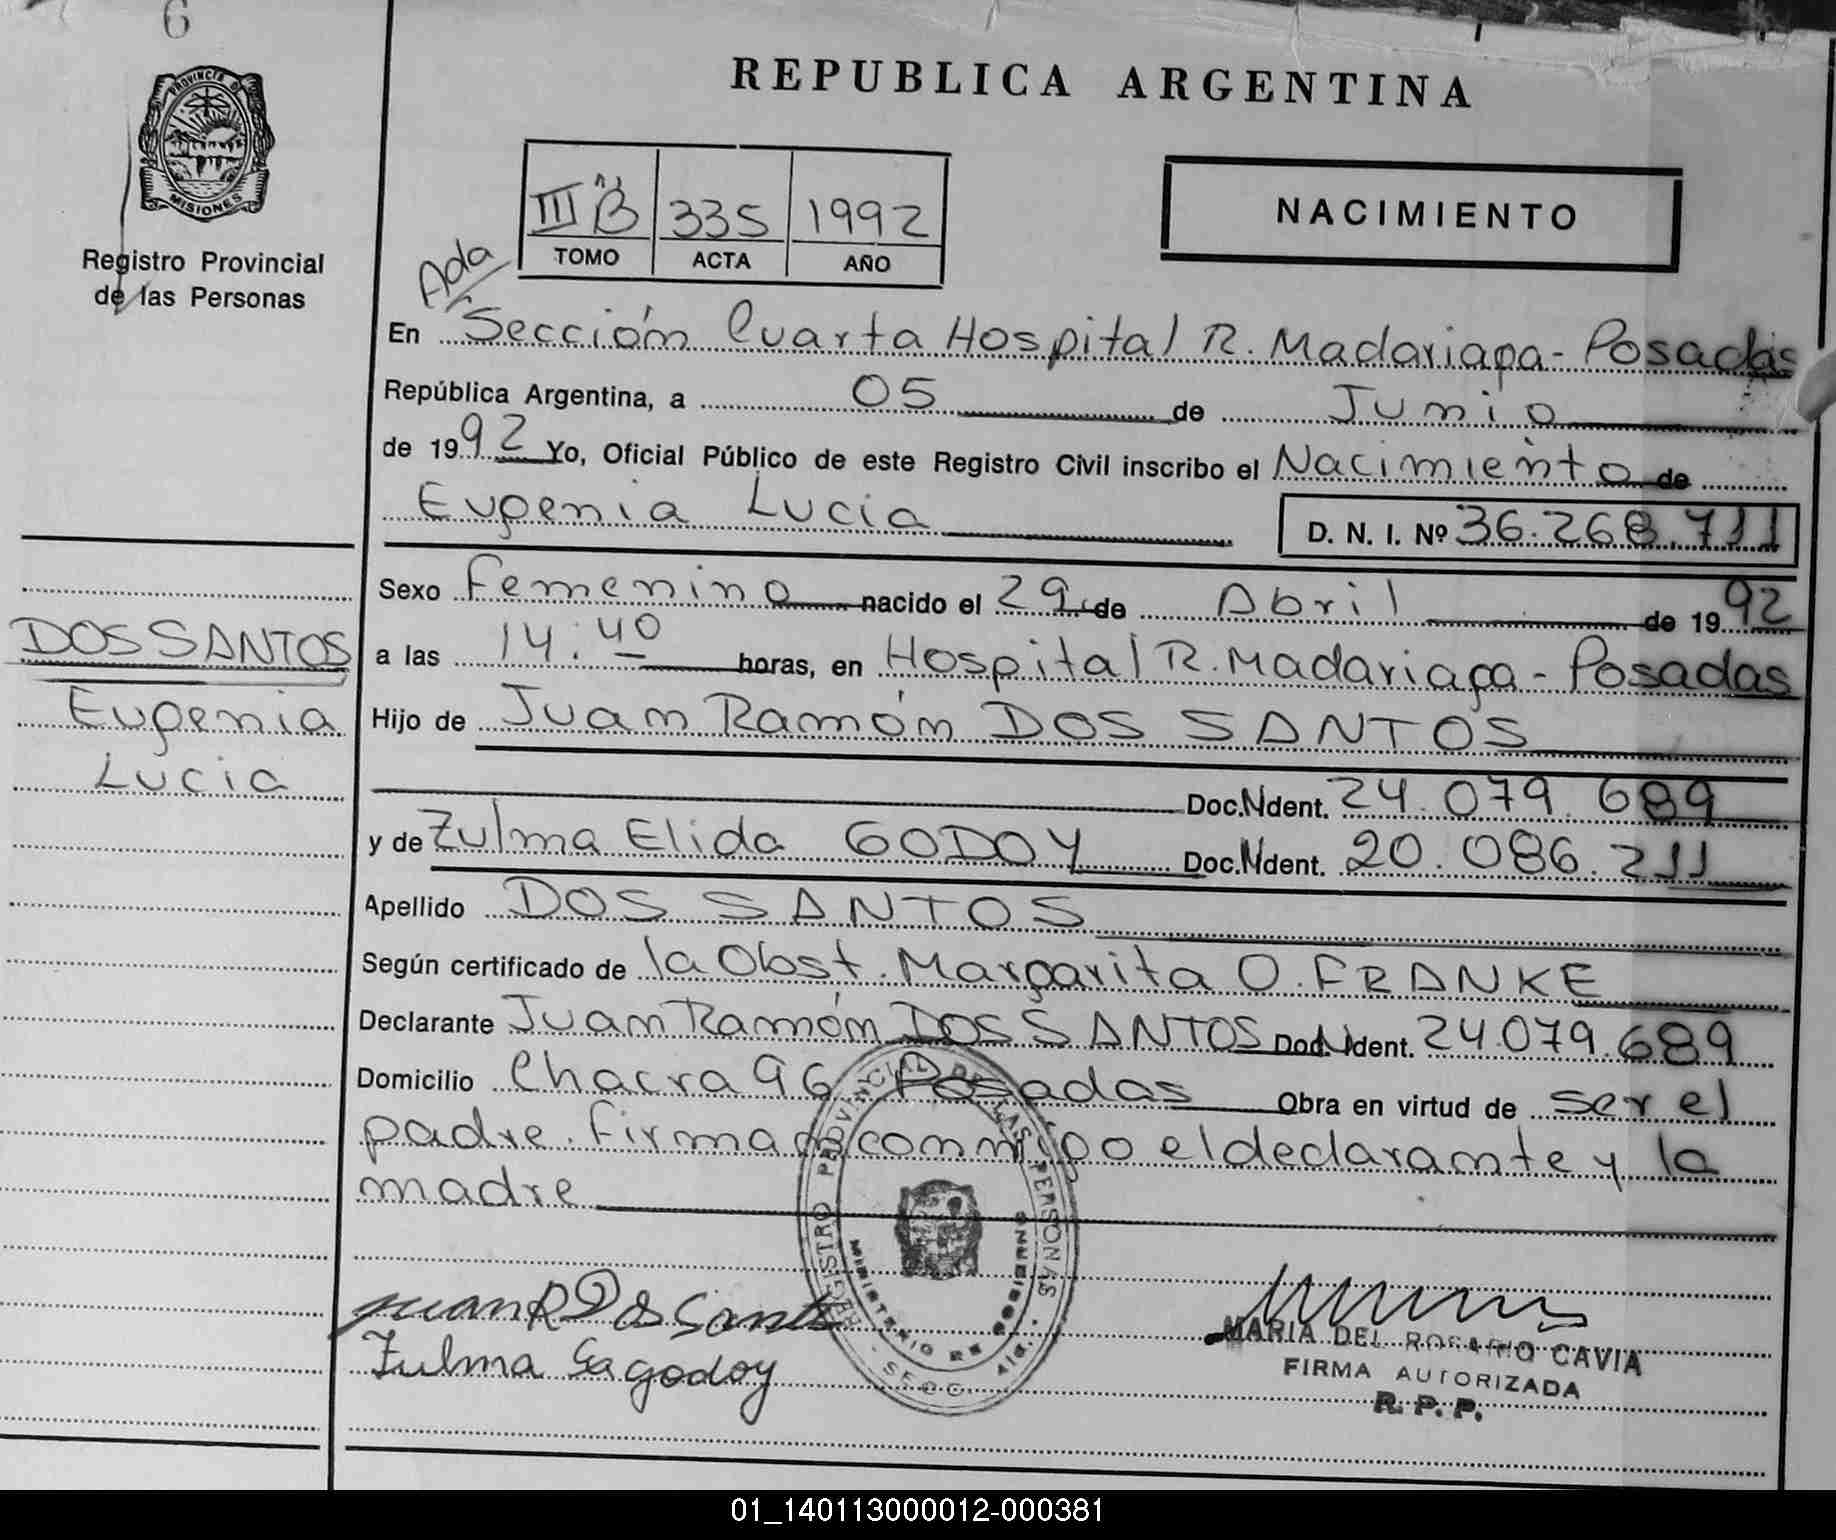 6
PROVINCIA DE
MISIONES
Registro Provincial
de las Personas
REPUBLICA ARGENTINA
III "B" 335 1992
TOMO ACTA AÑO
NACIMIENTO
Ada
En Sección Cuarta Hospital R. Madariaga - Posadas
República Argentina, a 05 de Junio
de 1992 Yo, Oficial Público de este Registro Civil inscribo el Nacimiento de
Eugenia Lucia D. N. I. Nº 36.268.711
Sexo Femenino nacido el 29 de Abril de 1992
a las 14:40 horas, en Hospital R. Madariaga - Posadas
Hijo de Juan Ramón DOS SANTOS
Doc. Ident. 24.079.689
y de Zulma Elida GODOY Doc. Ident. 20.086.211
Apellido DOS SANTOS
Según certificado de la Obst. Margarita O. FRANKE
Declarante Juan Ramón DOS SANTOS Doc. Ident. 24.079.689
Domicilio Chacra 96 Posadas Obra en virtud de ser el
padre. Firman conmigo el declarante y la
madre
DOS SANTOS
Eugenia
Lucia
REGISTRO PROVINCIAL DE LAS PERSONAS
MINISTERIO DE GOBIERNO
Juan R Dos Santos
Zulma E. Godoy
MARIA DEL ROSARIO CAVIA
FIRMA AUTORIZADA
R. P. P.
01_140113000012-000381